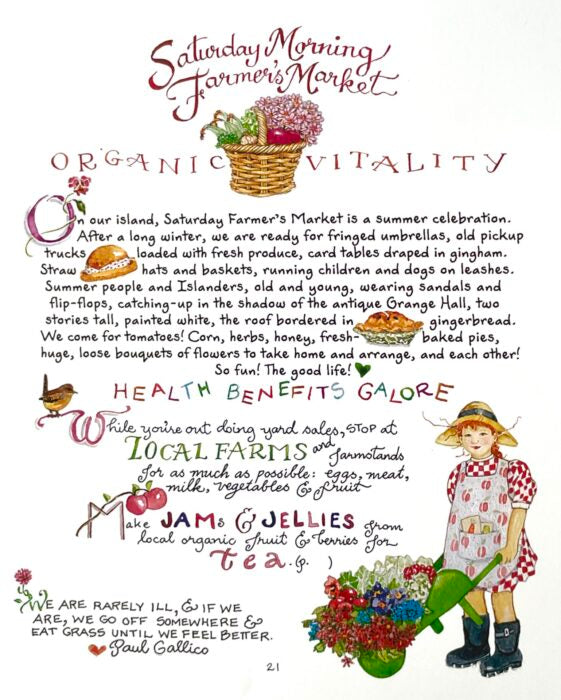 Saturday Morning
Farmer's Market
ORGANIC VITALITY
On our island, Saturday Farmer's Market is a summer celebration.
After a long winter, we are ready for fringed umbrellas, old pickup
trucks loaded with fresh produce, card tables draped in gingham.
Straw hats and baskets, running children and dogs on leashes.
Summer people and Islanders, old and young, wearing sandals and
flip-flops, catching-up in the shadow of the antique Grange Hall, two
stories tall, painted white, the roof bordered in gingerbread.
We come for tomatoes! Corn, herbs, honey, fresh-baked pies,
huge, loose bouquets of flowers to take home and arrange, and each other!
So fun! The good life!
HEALTH BENEFITS GALORE
While you're out doing yard sales, STOP at
LOCAL FARMS and farmstands
for as much as possible: eggs, meat,
milk, vegetables & fruit
Make JAMs & JELLIES from
local organic fruit & berries for
tea. (p. )
WE ARE RARELY ILL, & IF WE
ARE, WE GO OFF SOMEWHERE &
EAT GRASS UNTIL WE FEEL BETTER.
Paul Gallico
21